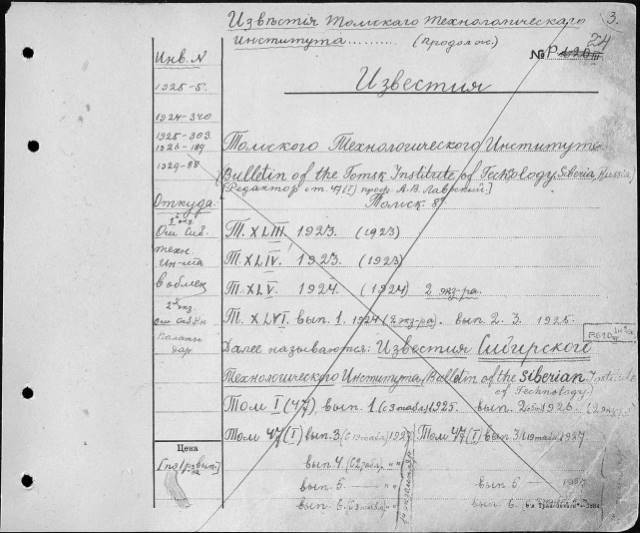 Извѣстія Томскаго Технологическаго 3.
Института .......... (продолж.)
24
№ Р 126 III
Инв. N
Известия
1925-5.
1924-340
1925-303
1926-189
1929-88
Томского Технологического Института
(Bulletin of the Tomsk Institute of Technology, Siberia, Russia)
[Редактор от 47(I) проф. А.В. Лаврский.]
Откуда
Томск 8°
2 экз.
От Сиб.
техн.
ин-та
в обмен
Т. XLIII 1923. (1923)
Т. XLIV. 1923. (1923)
Т. XLV. 1924. (1924) 2 экз-ра.
2й экз.
Т. XLVI. вып. 1. 1924 (2 экз-ра). вып. 2. 3. 1925.
дар
Далее называются: Известия Сибирского
Технологического Института (Bulletin of the Siberian Institute
of Technology)
Том I (47), вып. 1. (с 3 табл.) 1925. вып. 2 1926. (2 экз.)
Том 47 (I) вып. 3 (с 19 табл.) 1927 Том 47 (I) вып. 3 (19 табл.) 1927.
Цена
вып 4. (с 2 табл.) " "
вып. 5 — " " вып 5 — 1927
вып. 6. (с 3 табл.) " " вып. 6 —